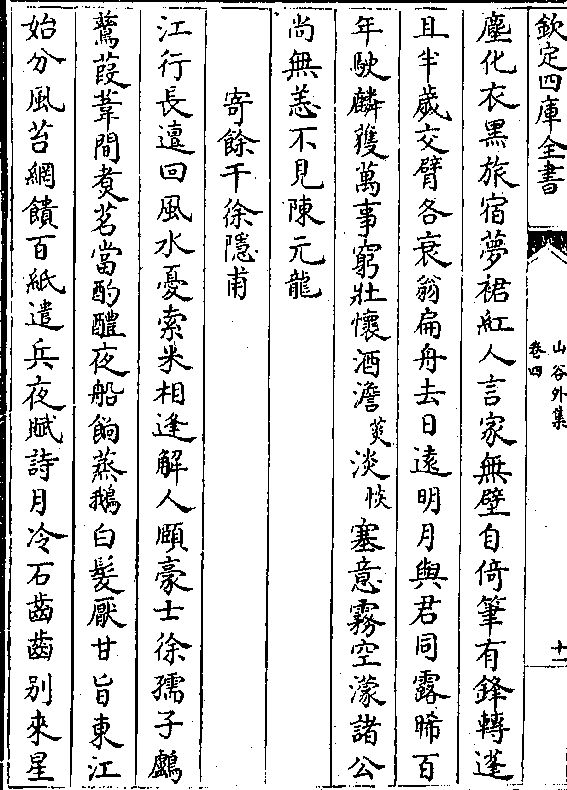 欽定四庫全書
山谷外集
卷四
十二
塵化衣黑旅宿夢裙紅人言家無壁自倚筆有鋒轉蓬
且半歲交臂各衰翁扁舟去日遠明月與君同露晞百
年駛麟獲萬事窮壯懷酒澹莢淡惔塞意霧空濛諸公
尚無恙不見陳元龍
寄餘干徐隱甫
江行長邅回風水憂索米相逢解人頤豪士徐孺子鸕
鶿葭葦間煮茗當酌醴夜船餉蒸鵝白髮厭甘旨東江
始分風苔網饋百紙遣兵夜賦詩月冷石齒齒别來星